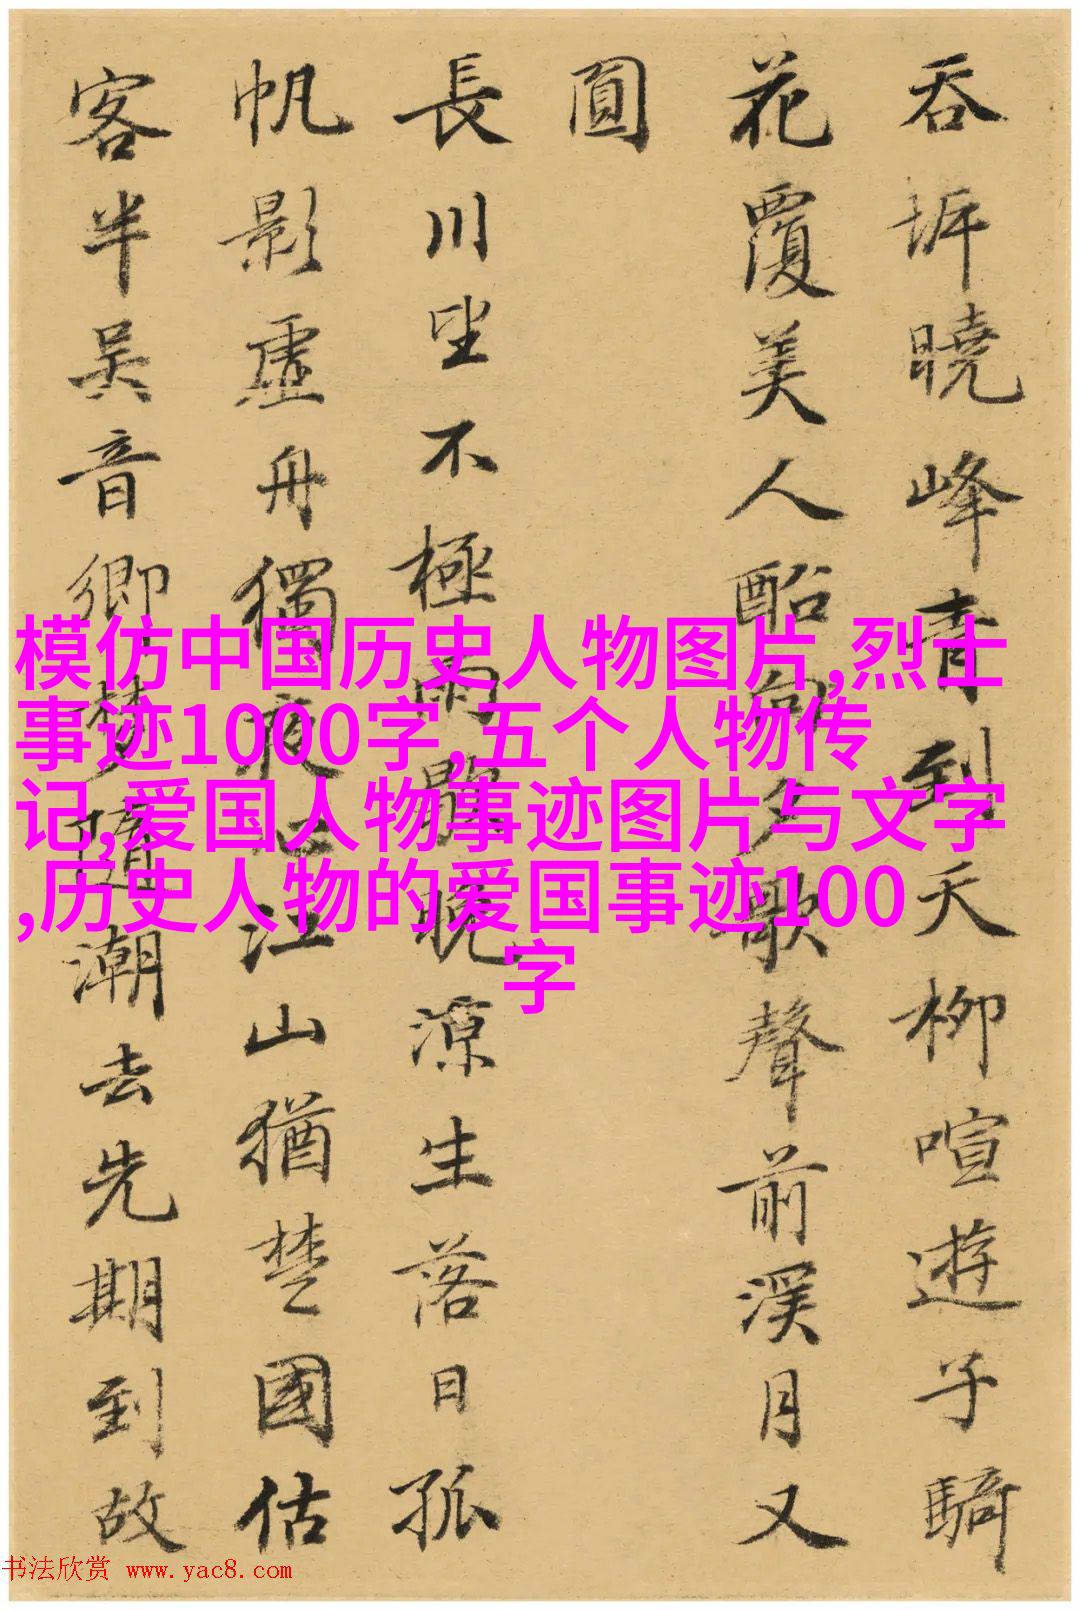 吞坼曉峰青到天柳喧遊子騎
花覆美人酩却夕歌聲前溪月又
圓
長川坐不極雨歇晚涼生落日孤
帆影虛舟獨夜心江山猶楚國估
客半吳音鄉夢隨潮去先期到故
模仿中国历史人物图片,烈士
事迹1000字,五个人物传
记,爱国人物事迹图片与文字
,历史人物的爱国事迹100
字
书法欣赏 www.yac8.com